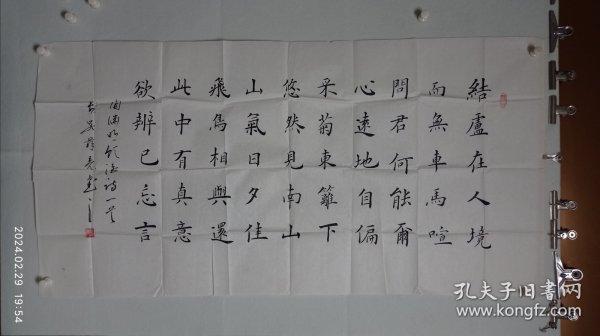 結廬在人境
而無車馬喧
問君何能爾
心遠地自偏
采菊東籬下
悠然見南山
山氣日夕佳
飛鳥相與還
此中有真意
欲辨已忘言
陶淵明飲酒詩一首
2024.02.29 19:54
孔夫子旧书网